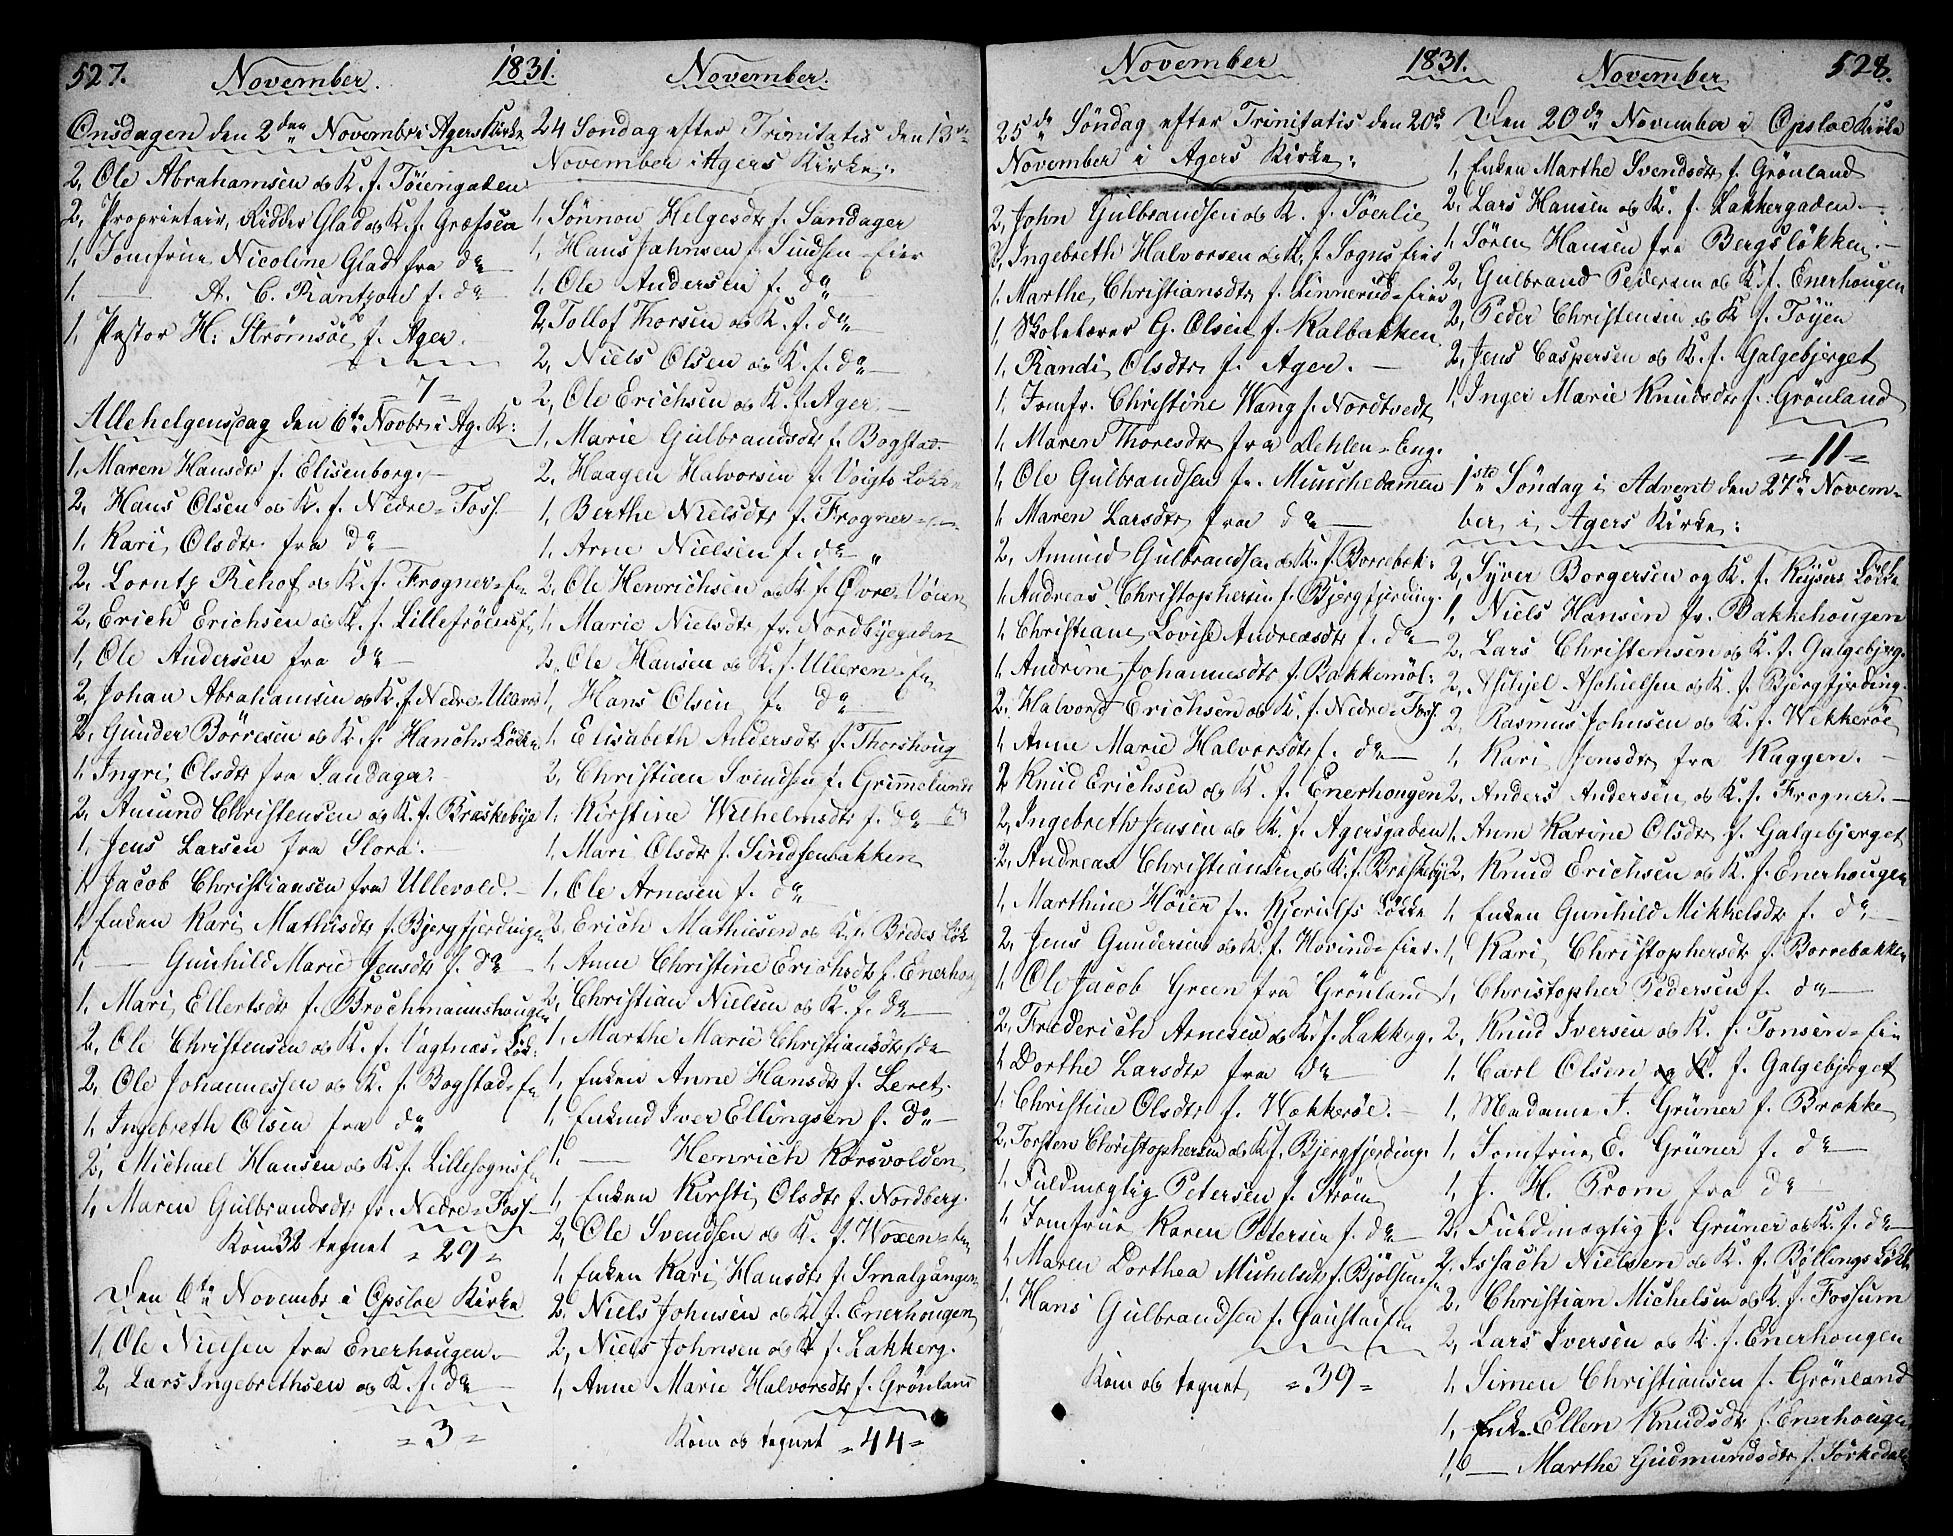 527. November. 1831. November.
Onsdagen den 2den November i Agers Kirke
2, Ole Abrahamsen og K. f. Töiengaden
2, Proprietair, Ridder Glad og K. f. Græfsen
1, Jomfrue Nicoline Glad fra do
1, — A. C. f. do
1, Pastor H: Strømsöe f. Ager.
7
Allehelgensdag den 6te Novbr i Ag. K:
1, Maren Hansdtr f. Elisenborg.
2, Hans Olsen og K. f. Nedre-Foss
1, Kari Olsdtr fra do
2, Lorntz Rehof og K. f. Frogner-En
2, Erich Erichsen og K. f. Lillefröensf
1, Ole Andersen fra do
2, Johan Abrahamsen og K. f. Nedre-Ulleren
2, Gunder Börresen og K. f. Hanchs Löcke
1, Ingri Olsdtr fra Sandager
2, Amund Christensen og K. f. Braskebye
1, Jens Larsen fra Slora.
1, Jacob Christiansen fra Ullevold.
1, Enken Kari Mathisdtr f. Bjergfjerdingen
1, — Gunhild Marie Jensdtr f. do
1, Mari Ellertsdtr f. Brochmannshougen
2, Ole Christensen og K. f. Vagtnas-Lök:
2, Ole Johannessen og K. f. Bogstad-En
1, Ingebreth Olsen fra do
2, Michael Hansen og K. f. Lillesognsf
1, Maren Gulbrandsdtr fr. Nedre-Foss
Kom 32 tegnet 29
Den 6te Novembr i Opsloe Kirke
1, Ole Nielsen fra Enerhougen.
2, Lars Ingebrethsen og K. f. do
3
24 Söndag efter Trinitatis den 13de
November i Agers Kirke.
1, Sönnow Helgesdtr f. Sandager
1, Hans Jahnsen f. Sindsen-Eier
1, Ole Andersen f. do
2, Tollof Thorsen og K. f. do
2, Niels Olsen og K. f. do
2, Ole Erichsen og K. f. Ager.
1, Marie Gulbrandsdtr f. Bogstad
2, Haagen Halvorsen f. Voigts Lökke
1, Berthe Nielsdtr f. Frogner
1, Arne Nielsen f. do
2, Ole Henrichsen og K f. Övre-Vöien
1, Marie Nielsdtr fr. Nordbyegaden
2, Ole Hansen og K. f. Ulleren-En
1, Hans Olsen f. do
1, Elisabeth Andersdtr f. Thorshoug
2, Christian Svendsen f. Grimmelund
1, Kirstine Wilhelmsdtr f. do
1, Mari Olsdtr f. Sindsenbakken
1, Ole Arnesen f. do
2, Erich Mathiesen og K. f. Bredes Lök
1, Anne Christine Erichsdtr f. Enerhoug
2, Christian Nielsen og K. f. do
1, Marthe Marie Christiansdtr f do
1, Enken Anne Hansdtr f. Leret.
1, Enkend Iver Ellingsen f. do
1, — Henrich Korsvolden
1, Enken Kirsti Olsdtr f. Nordberg.
2, Ole Svendsen og K. f. Woxen-En
1, Enken Kari Hansdtr f. Smalgangen
2, Niels Johnsen og K. f. Enerhougen
2, Niels Johnsen og K f. Lakkerg.
1, Anne Marie Halvorsdtr f. Grönland
Kom og tegnet 44
November 1831. November 528.
25de Söndag efter Trinitatis den 20de
November i Agers Kirke:
2, John Gulbrandsen og K. f. Söerlie
2, Ingebreth Halvorsen og K. f. Sogns Eies
1, Marthe Christiansdtr f. Linnerud-Eies
1, Skolelærer G. Olsen f. Kalbakken
1, Randi Olsdtr f. Ager.
1, Jomfr. Christine Wang f. Nordtvedt
1, Maren Thoresdtr fra Dehlen-Eng.
1, Ole Gulbrandsen fr. Munchedammen
1, Maren Larsdtr fra do
2, Amund Gulbrandsen og K. f. Borrebek:
1, Andreas Christophersen f. Bjergfjerding.
1, Christiane Lovise Andreasdtr f. do
1, Andrine Johannesdtr f. Bakkemöl:
2, Halvord Erichsen og K. f. Nedre-Foss.
1, Anne Marie Halvorsdtr f. do
2, Knud Erichsen og K. f. Enerhougen
2, Ingebreth Jensen og K. f. Agersgaden
2, Andreas Christiansen og K. f. Briskebye
1, Marthine Höier fr. Kjerulfs Lökke
2, Jens Gundersen og K. f. Hovind-Eies.
1, Ole Jacob Green fra Grönland
2, Frederich Arnesen og K. f. Lakkeg.
1, Dorthe Larsdtr fra do
1, Christine Olsdtr f. Wækkeröe.
2, Torsten Christophersen og K f. Bjergfjerding.
1, Fuldmægtig Petersen f. Ström
1, Jomfrue Karen Petersen f. do
1, Maren Dorthea Michelsdtr f. Bjölsen
1, Hans Gulbrandsen f. Gaustad
Kom og tegnet 39
Den 20de November i Opsloe Kirke
1, Enken Marthe Svendsdtr f. Grönland
2, Lars Hansen og K. f. Lakkergaden
1, Sören Hansen fra Bergslökken.
2, Gulbrand Pedersen og K. f. Enerhougen
2, Peder Christensen og K f. Töyen
2, Jens Caspersen og K. f. Galgebjerget
1, Inger Marie Knudsdtr f. Grönland
11
1ste Söndag i Advent den 27de Novem-
ber i Agers Kirke:
2, Syver Borgersen og K. f. Keysers Lökke
1, Niels Hansen fr. Bakkehougen
2, Lars Christensen og K. f. Galgebjerg.
2, Aslhjel Aslhielsen og K. f. Bjergfjerding.
2, Rasmus Johnsen og K. f. Wekkeröe
1, Kari Jensdtr fra Kaggen.
2, Anders Andersen og K. f. Frogner.
1, Anne Karine Olsdtr f. Galgebjerget
2, Knud Erichsen og K. f. Enerhougen
1, Enken Gunhild Mikkelsdtr f. do
1, Kari Christophersdtr f. Borrebakken
1, Christopher Pedersen f. do
2, Knud Iversen og K. f. Tonsen-Eie
1, Carl Olsen og K. f. Galgebjerget
1, Madame J. Grüner f. Brække
1, Jomfrue E. Grüner f. do
1, J. H. Prom fra do
2, Fuldmægtig J. Grüner og K. f. do
2, Issach Nielsen og K. f. Böllings Lökke
2, Christian Michelsen og K. f. Fossum
2, Lars Iversen og K. f. Enerhougen
1, Simen Christiansen f. Grönland
1, Enk. Ellen Knudsdtr f. Enerhougen
1, — Marthe Gudmundsdtr f. Sörkedalen